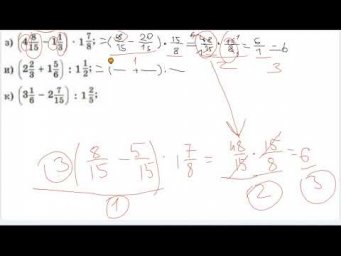 з) (4 8/15 − 1 1/3) · 1 7/8; = (68/15 − 20/15) · 15/8 = 48/15 · 15/8 = 6/1 = 6
1 2 3
и) (2 2/3 + 1 5/6) : 1 1/2; = (— + —) · —
к) (3 1/6 − 2 7/15) : 1 2/5;
3 (8/15 − 5/15) · 1 7/8 = 48/15 · 15/8 = 6
1 2 3